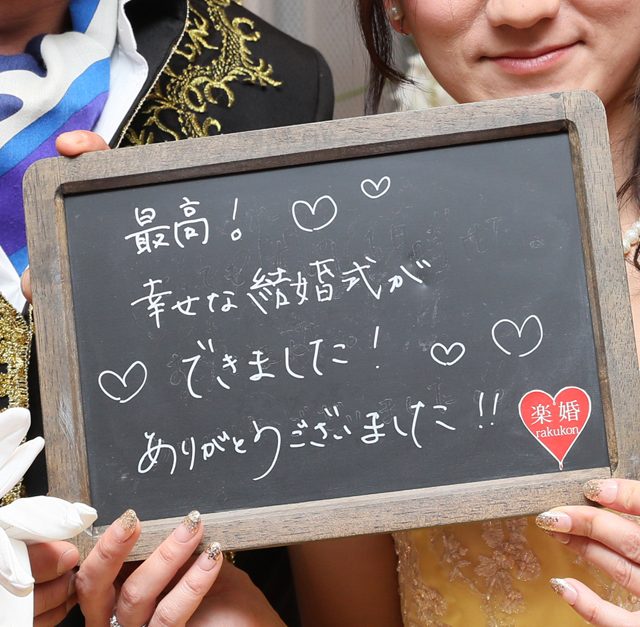 最高!
幸せな結婚式が
できました!
ありがとうございました!!
楽婚
rakukon